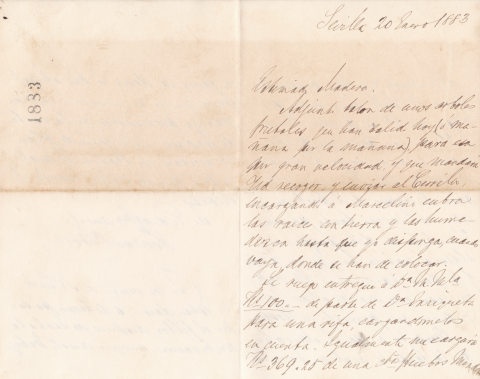 1833
Sevilla 20 Enero 1883
Estimado Madero.
Adjunto talon de unos arboles
frutales que han salido hoy (ó ma-
ñana por la mañana) para esa
por gran velocidad, y que mandará
Vd recoger y enviar al
encargando á Marcelino cubra
las raices con tierra y las hume-
dezca hasta que yo disponga, cuando
vaya, donde se han de colocar.
Le ruego entregue á Dª
100 .- de parte de Dª Enriqueta
para una rifa, cargandomelos
en cuenta. Igualmente me cargará
369.25 de una